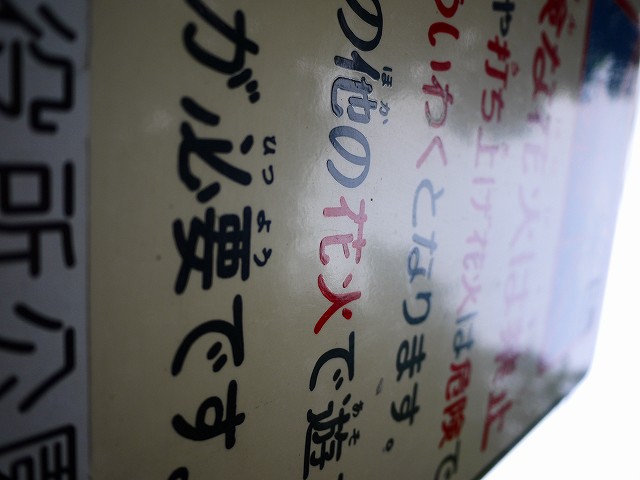 な花火は禁止
や打ち上げ花火は危険で
いわくとなります。
ほか
あそ
の他の花火で遊
ひつよう
が必要です。
役所公園